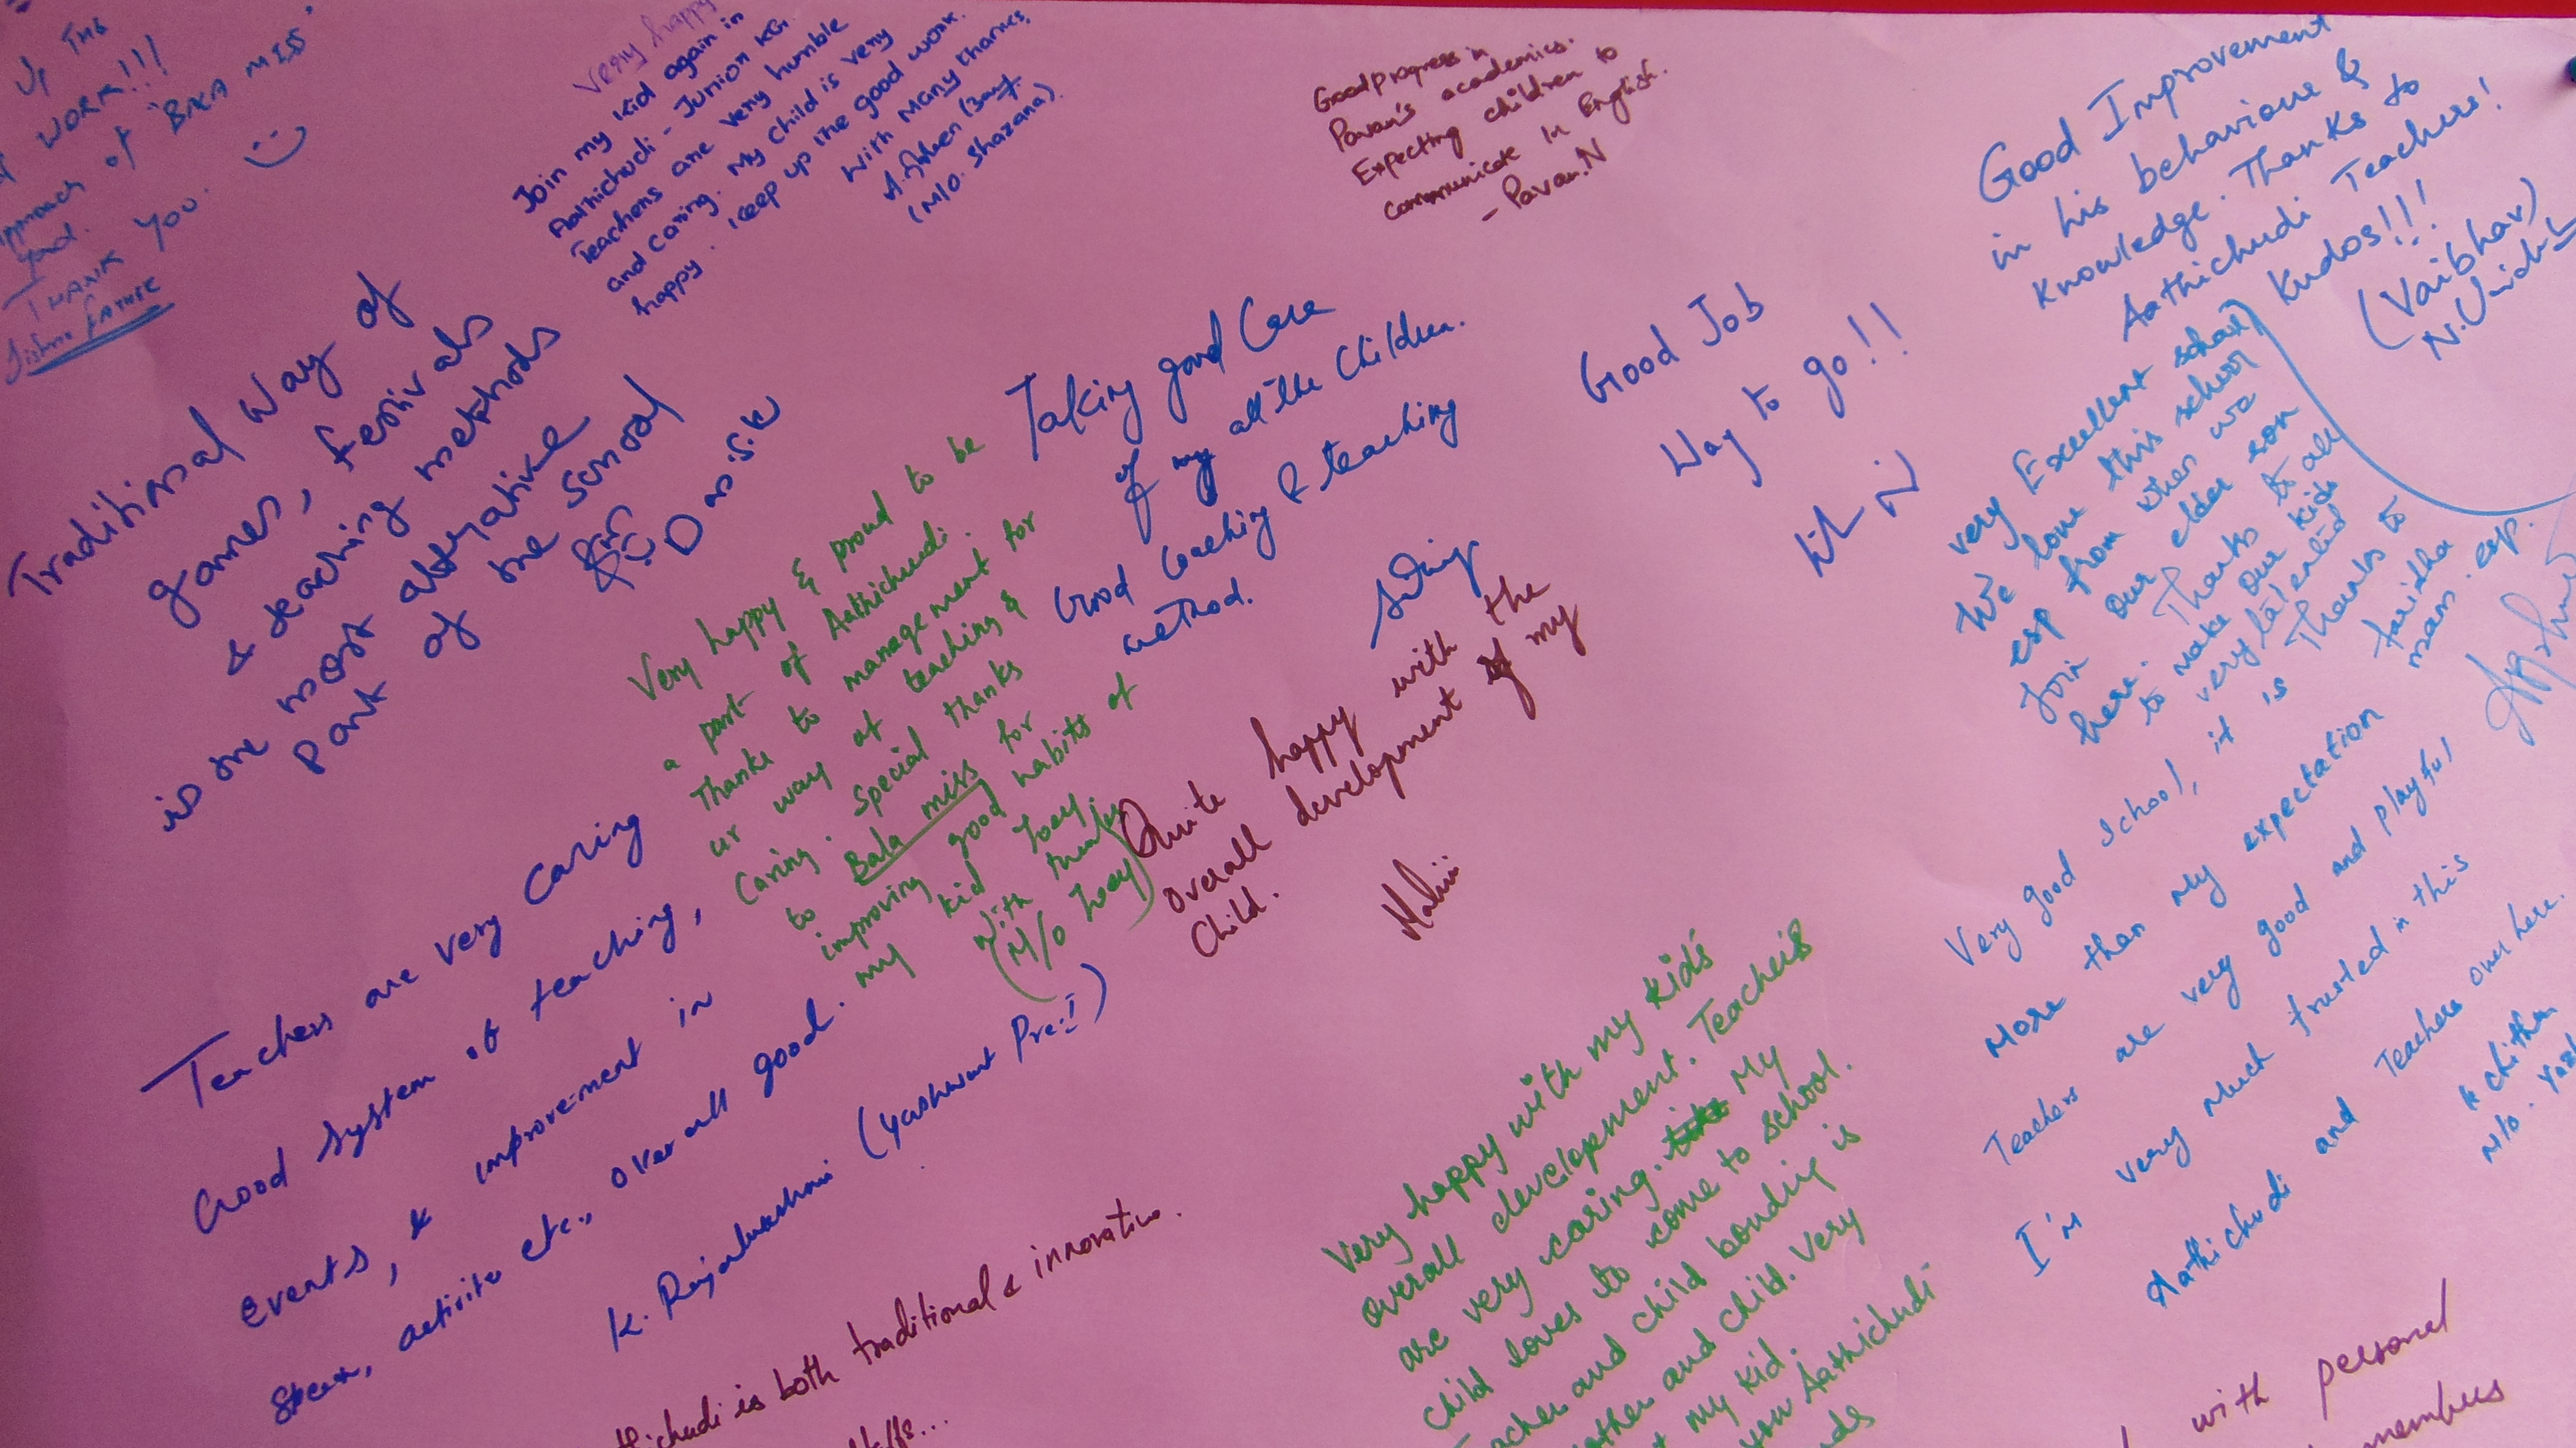 UP THE
WORK!!!
approach of "BALA MISS"
THANK YOU.
Very happy
Join my kid again in
Aathichudi - Junior KG.
Teachers are very humble
and caring. My child is very
happy. Keep up the good work.
With Many thanks,
(M/o. Shazana).
Good progress in
Pavan's academics.
Expecting children to
communicate in English.
- Pavan.N
Good Improvement
in his behaviour &
Knowledge. Thanks to
Aathichudi Teachers!
Kudos!!!
(Vaibhav)
Traditional way of
games, festivals
& teaching methods
is the most attrative
part of the school
Taking good Care
of my all the Children.
Good Coaching & teaching
method.
Good Job
Way to go!!
very Excellent school
We love this school
esp from when we
join our elder son
here. Thanks to all
to make our kids
very talented
Thanks to
faridha
mam. esp.
Very happy & proud to be
a part of Aathichudi.
Thanks to management for
ur way of teaching &
Caring. Special thanks
to Bala miss for
improving good habits of
my kid Joey.
With thanks
(M/o Joey)
Quite happy with the
overall development of my
Child.
Very good School, it is
More than My expectation
Teachers are very good and playful
I'm very Much trusted in this
Aathichudi and Teachers over here.
Teachers are very caring
Good System of teaching,
Events, & improvement in
activites etc., over all good.
(Yashwant Pre:I)
thichudi is both traditional & innovative.
Very happy with my kid's
overall development. Teachers
are very caring. My
child loves to come to school.
Teacher and child bonding is
mother and child. Very
my kid.
Aathichudi
with personal
members